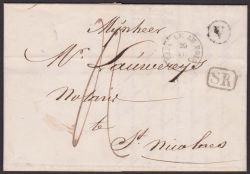 Mijnheer
Mr. Lauwereys
Notaris
te
St Nicolaes
SR